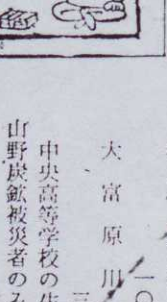 一〇
三
大富原川
中央高等学校の
山野炭鉱被災者のみ